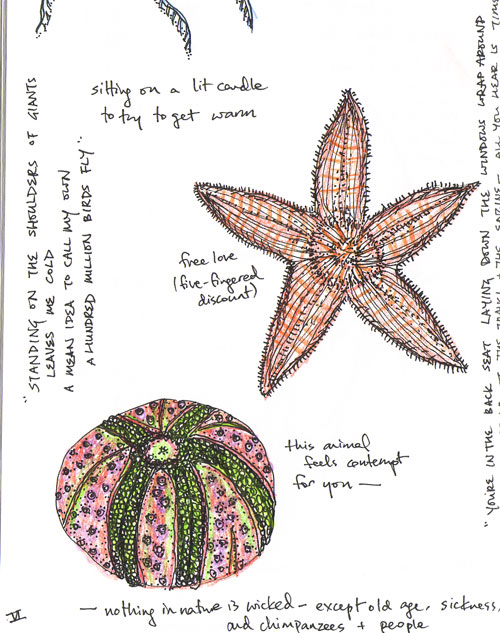 sitting on a lit candle
to try to get warm
"STANDING ON THE SHOULDERS OF GIANTS
LEAVES ME COLD
A MEAN IDEA TO CALL MY OWN
A HUNDRED MILLION BIRDS FLY"
free love
(five-fingered
discount)
this animal
feels contempt
for you —
"YOU'RE IN THE BACK SEAT LAYING DOWN THE WINDOWS WRAP AROUND
ALL YOU HEAR IS TIME
VI
— nothing in nature is wicked — except old age, sickness,
and chimpanzees + people